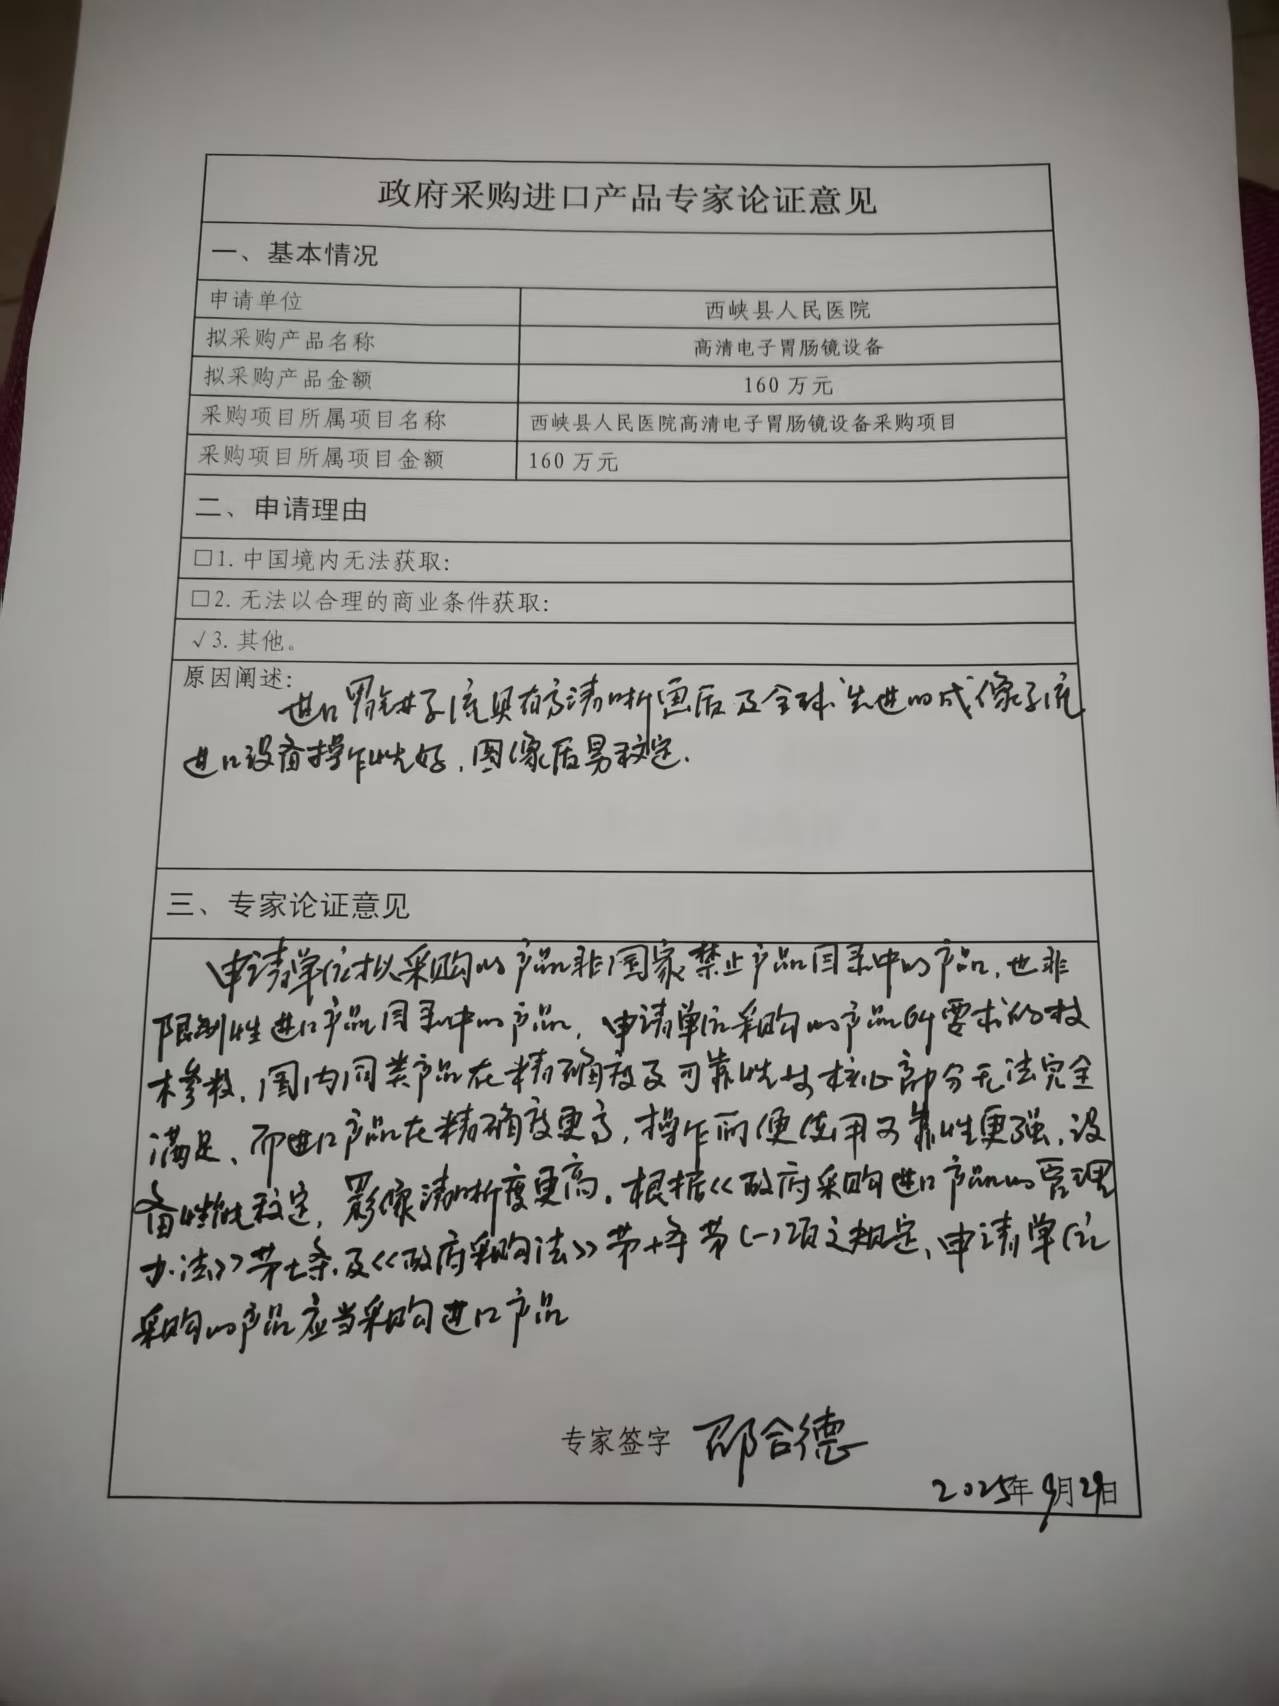 政府采购进口产品专家论证意见
一、基本情况
申请单位 西峡县人民医院
拟采购产品名称 高清电子胃肠镜设备
拟采购产品金额 160万元
采购项目所属项目名称 西峡县人民医院高清电子胃肠镜设备采购项目
采购项目所属项目金额 160万元
二、申请理由
□1.中国境内无法获取:
□2.无法以合理的商业条件获取:
√3.其他。
原因阐述:
进口胃镜系统具有高清晰画质及全球先进的成像系统
进口设备操作性好,图像质量稳定.
三、专家论证意见
申请单位拟采购的产品非国家禁止产品目录中的产品,也非
限制性进口产品目录中的产品,申请单位采购的产品所要求的技
术参数,国内同类产品在精确度及可靠性等核心部分无法完全
满足、而进口产品在精确度更高,操作简便使用可靠性更强,设
备性能稳定,影像清晰度更高。根据《政府采购进口产品的管理
办法》第七条及《政府采购法》第十条第(一)项之规定、申请单位
采购的产品应当采购进口产品
专家签字 邵合德
2025年9月29日